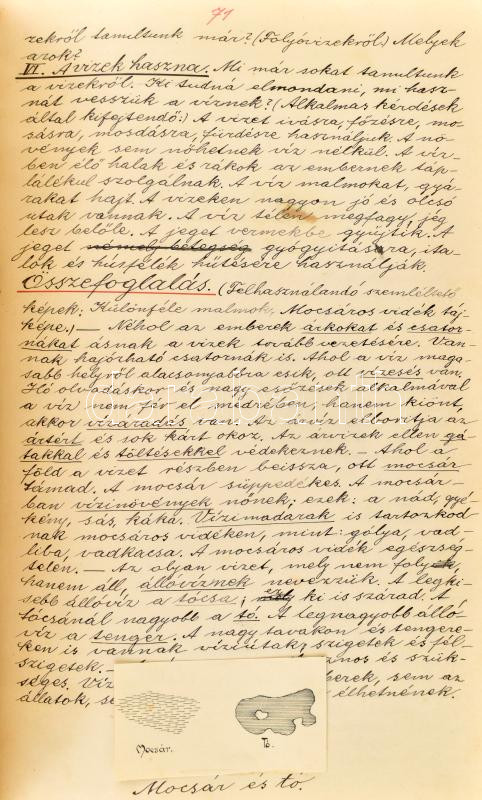 71
zekről tanultunk már? (Folyóvizekről.) Melyek
azok?
VI. A vizek haszna. Mi már sokat tanultunk
a vizekről. Ki tudná elmondani, mi hasz-
nát vesszük a víznek? (Alkalmas kérdések
által kifejtendő.) A vizet ivásra, főzésre, mo-
sásra, mosdásra, fürdésre használjuk. A nö-
vények sem nőhetnek víz nélkül. A víz-
ben élő halak és rákok az embernek táp-
lálékul szolgálnak. A víz malmokat, gyá-
rakat hajt. A vizeken nagyon jó és olcsó
utak vannak. A víz télen megfagy, jég
lesz belőle. A jeget vermekbe gyűjtik. A
jeget némely betegség gyógyítására, ita-
lok és húsfélék hűtésére használják.
Összefoglalás. (Felhasználandó szemléltető
képek: Különféle malmok, Mocsáros vidék táj-
képe.) — Néhol az emberek árkokat és csator-
nákat ásnak a vizek tovább vezetésére. Van-
nak hajózható csatornák is. Ahol a víz maga-
sabb helyről alacsonyabbra esik, ott vízesés van.
Hó olvadáskor és nagy esőzések alkalmával
a víz nem fér el medrében, hanem kiönt,
akkor vízáradás van. Az árvíz elborítja az
ártért és sok kárt okoz. Az árvizek ellen gá-
takkal és töltésekkel védekeznek. — Ahol a
föld a vizet részben beissza, ott mocsár
támad. A mocsár süppedékes. A mocsár-
ban vízinövények nőnek; ezek: a nád, gyé-
kény, sás, káka. Vízimadarak is tartózkod-
nak mocsáros vidéken, mint: gólya, vad-
liba, vadkácsa. A mocsáros vidék egészség-
telen. — Az olyan vizet, mely nem foly,
hanem áll, állóvíznek nevezzük. A legki-
sebb állóvíz a tócsa; ki is szárad. A
tócsánál nagyobb a tó. A legnagyobb álló-
víz a tenger. A nagy tavakon és tengere-
ken is vannak víziutak, szigetek és fél-
szigetek. — és szük-
séges. Víz sem az
állatok, élhetnének.
Mocsár. Tó.
Mocsár és tó.
darabanth